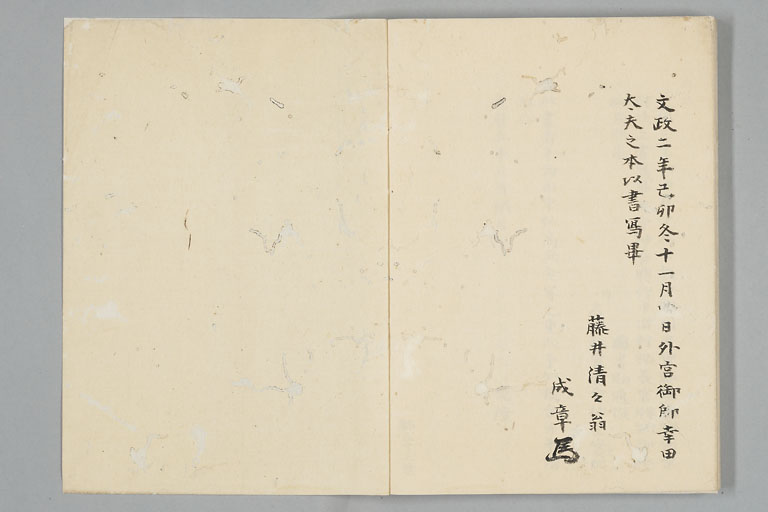 文政二年己卯冬十一月 日外宮御師幸田
太夫之本以書寫畢
藤井清々翁
成章